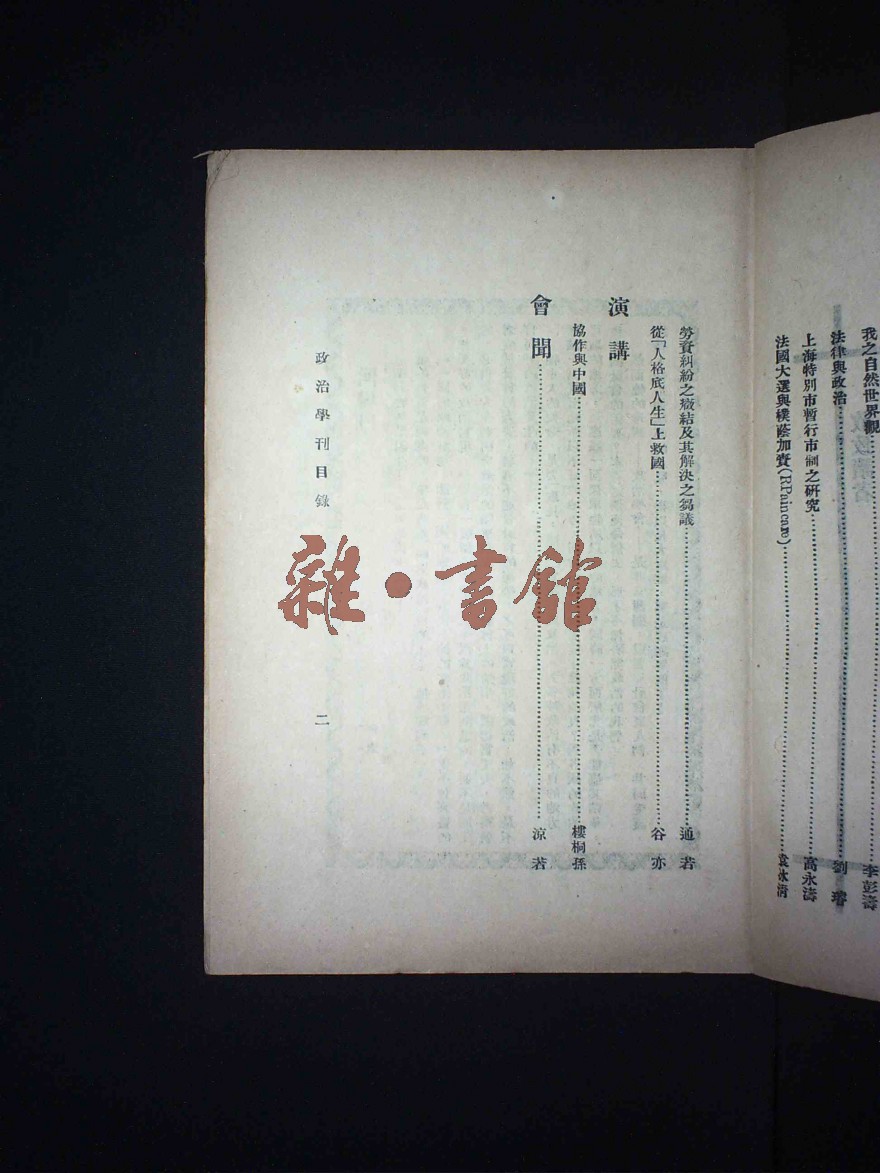 我之自然世界觀……李彭濤
法律與政治……劉璿
上海特別市暫行市制之研究……高永濤
法國大選與樸蔭加賚(RPaincare)……袁冰清
勞資糾紛之癥結及其解決之芻議……通若
從「人格底人生」上救國……谷亦
演講
協作與中國……樓桐孫
會聞……涼若
政治學刊目錄 二
雜·書館